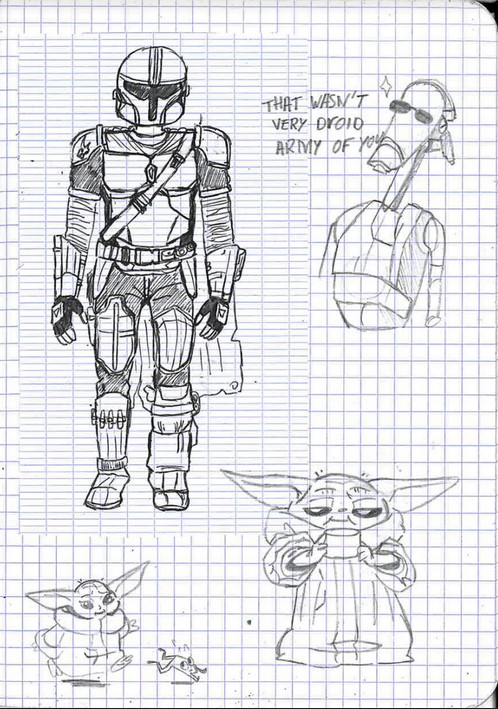 THAT WASN'T
VERY DROID
ARMY OF YOU